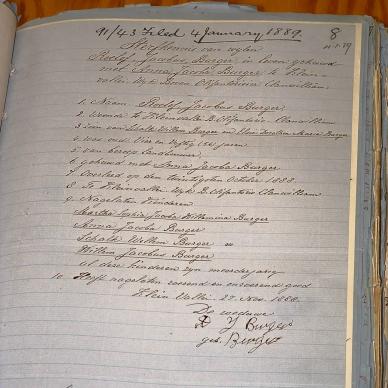 91/43 Filed 4 January 1889. 8
Sterfkennis van wylen
Roelof Jacobus Burger in leven gehuwd
met Anna Jacoba Burger te Klein
vallei Wyk B
1. Naam Roelof Jacobus Burger
2. Woonde te Kleinvallei B.
3. Zoon van Schalk Willem Burger en Maria Burger
4. was oud Vier en Vyftig jaren
5. van beroep Landbouwer
6. gehuwd met Anna Jacoba Burger
7. Overleed op den twintigsten October 1888.
8. Te Kleinvallei Wyk B.
9. Nagelaten Kinderen
Martha Sophia Jacoba Willemina Burger
Anna Jacoba Burger
Schalk Willem Burger en
Willem Jacobus Burger
al deze kinderen zyn meerderjarig
10. Heeft nagelaten roerend en onroerend goed
Klein Vallei 27 Nov. 1888.
De weduwe
J Burger
geb. Burger